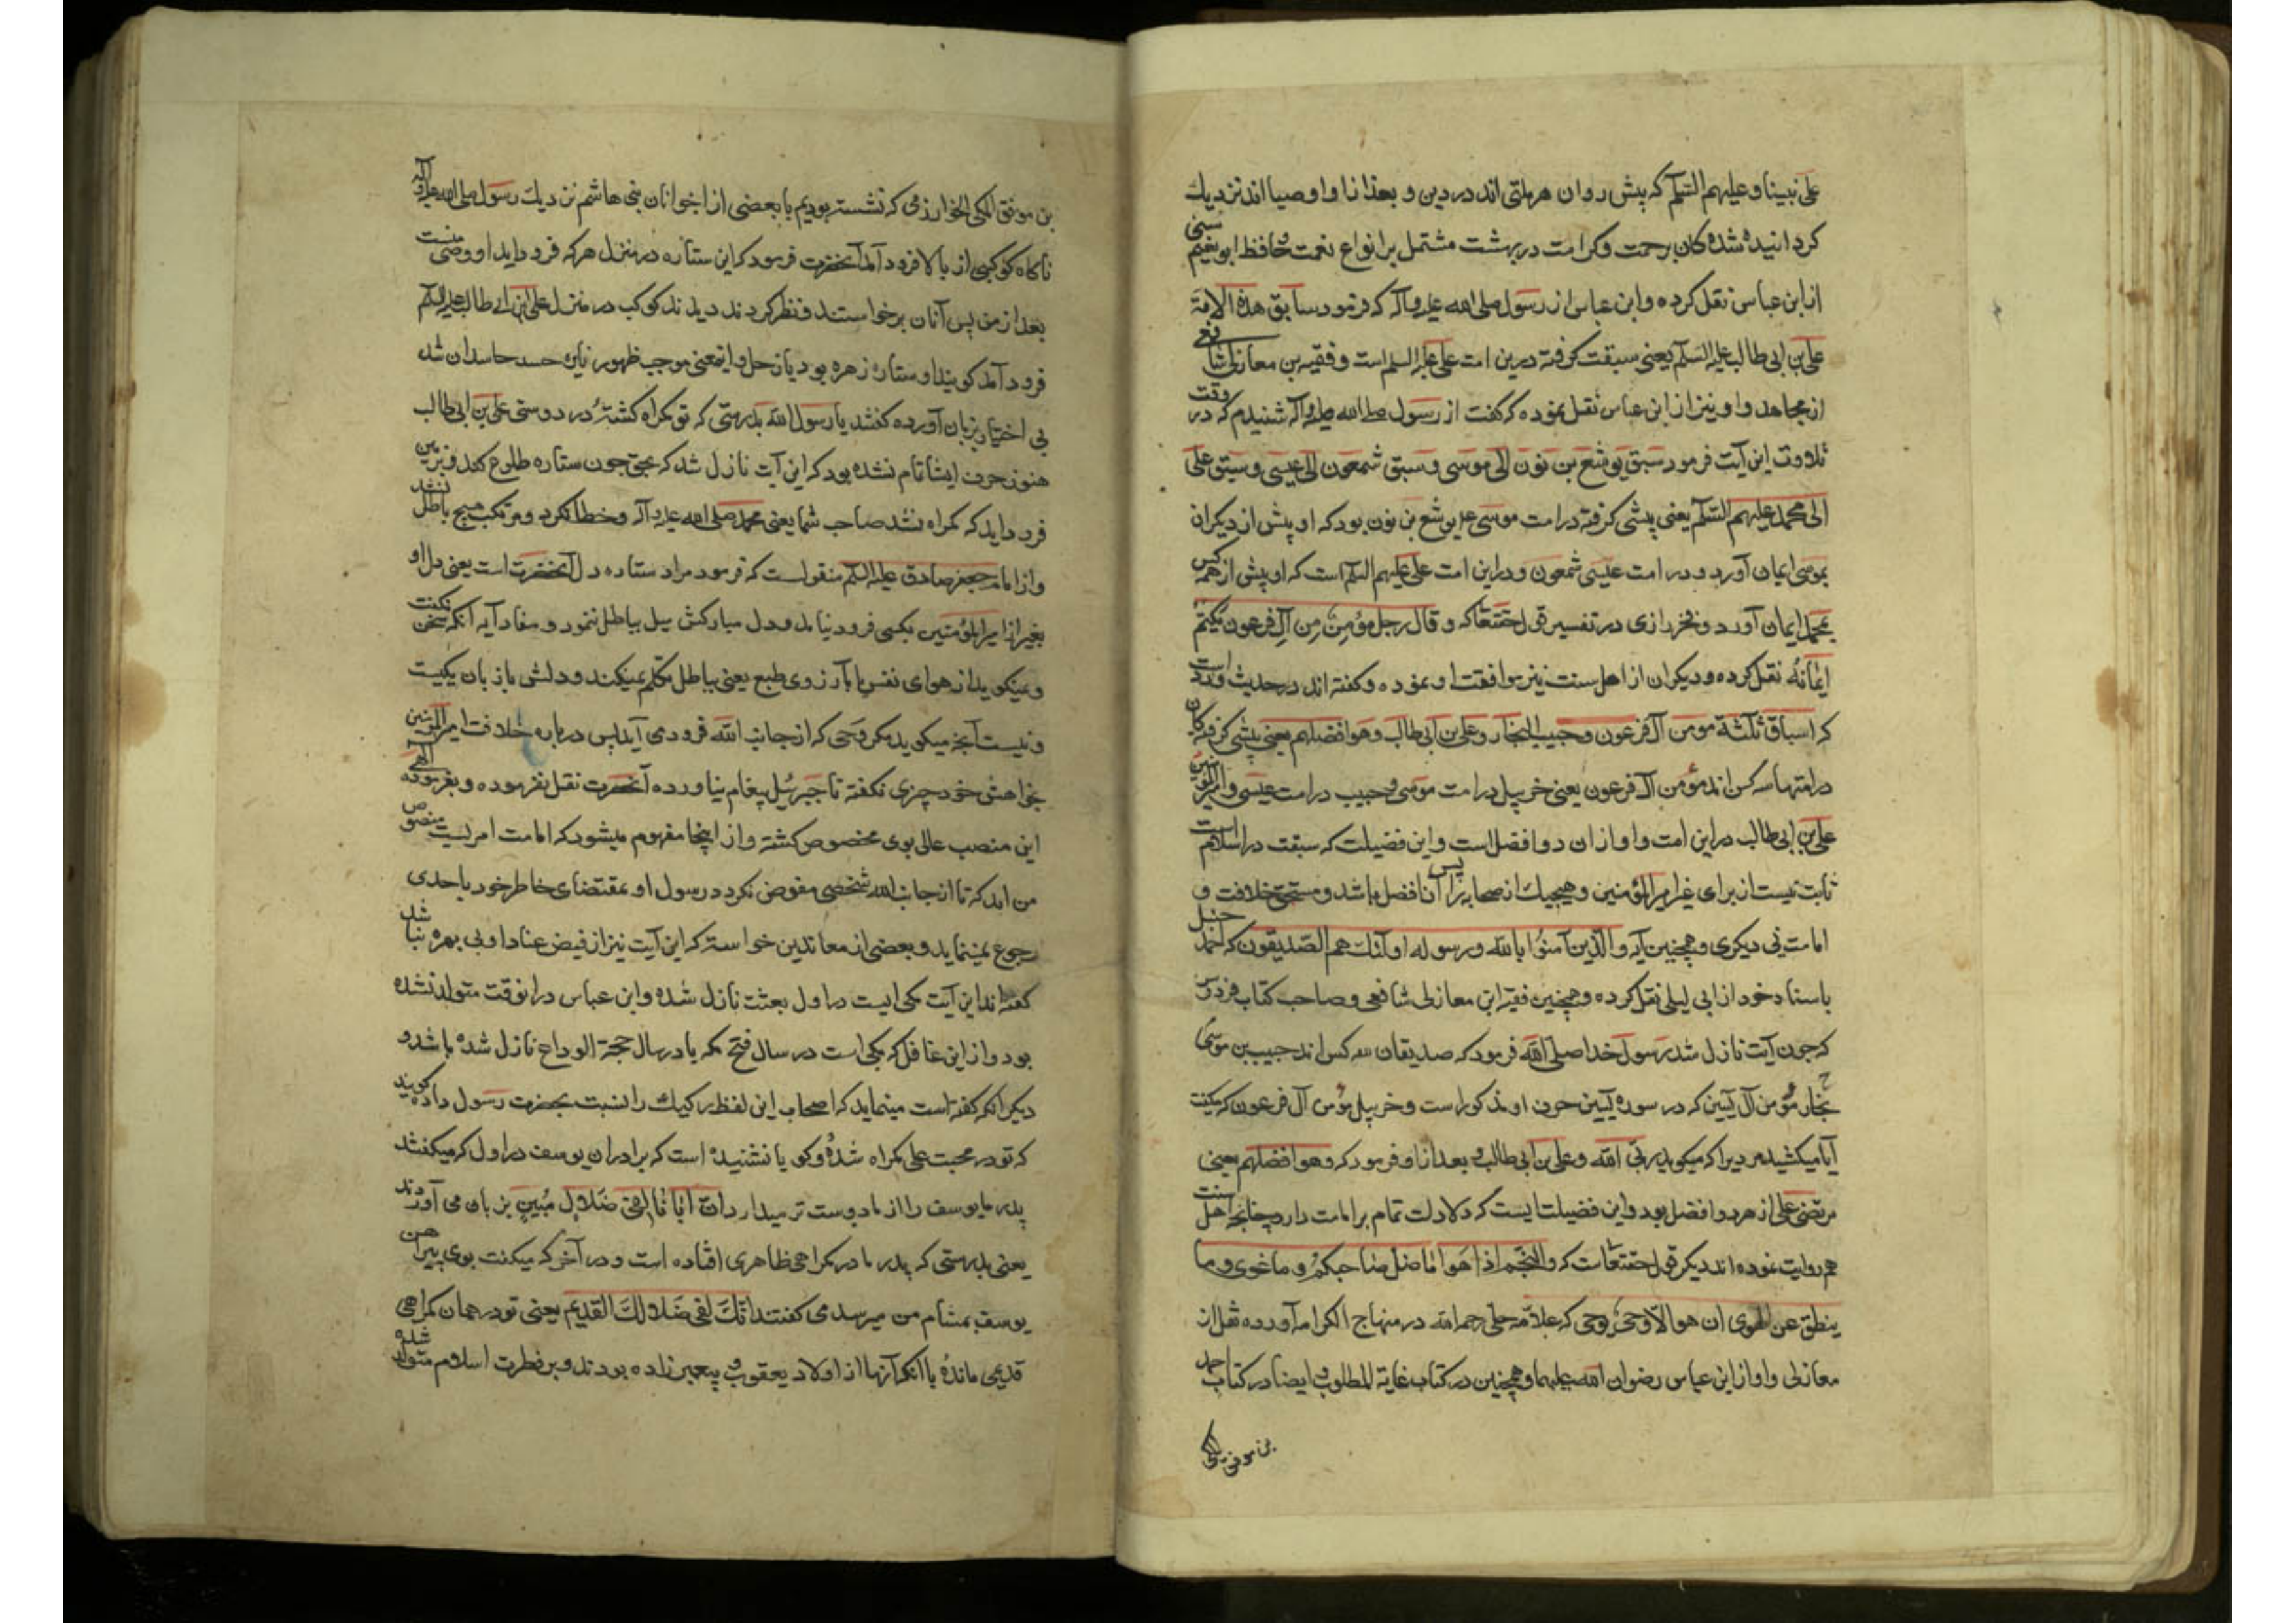 علی نبینا و علیهم السلم که پیش روان هر ملتی اند در دین و بعد از او اوصیا اند نزدیك
کردانیده شده کان برحمت و کرامت در بهشت مشتمل بر انواع نعمت و حافظ ابو نعیم سنی
از ابن عباس نقل کرده و ابن عباس از رسول صلی الله علیه و آله که فرمود سابق هذه الامة
علی بن ابی طالب علیه السلم یعنی سبقت کرفته درین امت علی علیه السلم است و فقیه بن معازلی شافعی
از مجاهد و او نیز از ابن عباس نقل نموده که کفت از رسول صلی الله علیه و آله شنیدم که در وقت
تلاوت این آیت فرمود سبق یوشع بن نون الی موسی و سبق شمعون الی عیسی و سبق علی
الی محمد علیهم السلم یعنی پیشی کرفته در امت موسی یوشع بن نون بود که او پیش از دیکران
بموسی ایمان آورد و در امت عیسی شمعون و در این امت علی علیهم السلم است که او پیش از همه کس
بمحمد ایمان آورد و فخر رازی در تفسیر قول حقتعا که و قال رجل مؤمن من آل فرعون یکتم
ایمانه نقل کرده و دیکران از اهل سنت نیز موافقت او نموده و کفته اند در حدیث وارد است
که اسباق ثلثة مومن آل فرعون و حبیب النجار و علی بن ابی طالب و هو افضلهم یعنی پیشی کرفته کان
در امتها سه کس اند مؤمن آل فرعون یعنی خربیل در امت موسی و حبیب در امت عیسی و امیر المؤمنین
علی بن ابی طالب در این امت و او از ان دو افضل است و این فضیلت که سبقت در اسلام است
ثابت نیست از برای غیر امیر المؤمنین و هیچیك از صحابه را پس آن افضل باشد و مستحق خلافت و
امامت نی دیکری و همچنین آیه و الذین آمنوا بالله و رسوله اولئك هم الصدیقون که احمد حنبل
باسناد خود از ابی لیلی نقل کرده و همچنین فقیه ابن معازلی شافعی و صاحب کتاب فردوس
که چون آیت نازل شد رسول خدا صلی الله فرمود که صدیقان سه کس اند حبیب بن موسی
نجار مؤمن آل یسین که در سوره یسین حرف او مذکور است و خربیل مؤمن آل فرعون که میکفت
آیا میکشید مردیرا که میکوید ربی الله و علی بن ابی طالب و بعد از او فرمود که و هو افضلهم یعنی
مرتضی علی از هر دو افضل بود و این فضیلتایست که دلالت تمام بر امامت دارد چنانچه اهل سنت
هم روایت نموده اند دیکر قول حقتعا است که و النجم اذا هوا ما ضل صاحبکم و ما غوی و ما
ینطق عن الهوی ان هو الا وحی یوحی که علامه حلی رحمه الله در منهاج الکرامه آورده نقل از
معازلی و او از ابن عباس رضوان الله علیهما و همچنین در کتاب غایة المطلوب و ایضا در کتاب احمد
بن موفق المکی
بن موفق المکی الخوارزمی که نشسته بودیم با بعضی از اخوانان بنی هاشم نزدیك رسول صلی الله علیه و آله
ناکاه کوکبی از بالا فرود آمد آنحضرت فرمود که این ستاره در منزل هر که فرود آید او وصی منست
بعد از من پس آنان برخواستند و نظر کردند دیدند کوکب در منزل علی ابن ابی طالب علیه السلم
فرود آمد کویند او ستاره زهره بود یا زحل و اینمعنی موجب ظهور نایره حسد حاسدان شد
بی اختیار بزبان آورده کفتند یا رسول الله بدرستی که تو کمراه کشتهٔ در دوستی علی بن ابی طالب
هنوز حرف ایشا تمام نشده بود که این آیت نازل شد که بحق چون ستاره طلوع کند و بزمین
فرود آید که کمراه نشد صاحب شما یعنی محمد صلی الله علیه و آله و خطا نکرد و مرتکب هیچ باطل نشد
و از امام جعفر صادق علیه السلم منقولست که فرمود مراد ستاره دل آنحضرت است یعنی دل او
بغیر از امیر المؤمنین بکسی فرود نیامد و دل مبارکش میل بباطل ننمود و مفاد آیه آنکه سخن نکفت
و نمیکوید از هوای نفس یا بآرزوی طبع یعنی بباطل تکلم نمیکند و دلش با زبان یکیست
و نیست آنچه میکوید مکر وحی که از جانب الله فرود می آید پس درباره خلافت امیر المؤمنین
بخواهش خود چیزی نکفته تا جبرئیل پیغام نیاورده آنحضرت نقل نفرموده و بفرموده الهی
این منصب عالی بوی مخصوص کشته و از اینجا مفهوم میشود که امامت امریست منصوص
من الله که تا از جانب الله شخصی مفوض نکردد رسول او بمقتضای خاطر خود باحدی
رجوع نمینماید و بعضی از معاندین خواسته که این آیت نیز از فیض عناد او بی بهره نباشد
کفته اند این آیت مکی ایست در اول بعثت نازل شده و ابن عباس در انوقت متولد نشده
بود و از این غافل که مکی است در سال فتح مکه یا در سال حجة الوداع نازل شده باشد و
دیکر آنکه کفته است مینماید که اصحاب این لفظ رکیك را نسبت بحضرت رسول داده کویند
که تو در محبت علی کمراه شدهٔ و کویا نشنیده است که برادران یوسف در اول که میکفتند
پدر ما یوسف را از ما دوست تر میدارد ان ابانا لفی ضلال مبین بزبان می آوردند
یعنی بدرستی که پدر ما در کمراهی ظاهری افتاده است و در آخر که میکفت بوی پیراهن
یوسف بمشام من میرسد می کفتند انك لفی ضلالك القدیم یعنی تو در همان کمراهی
قدیمی ماندهٔ با آنکه آنها از اولاد یعقوب و پیغمبر زاده بودند و بر فطرت اسلام متولد شده